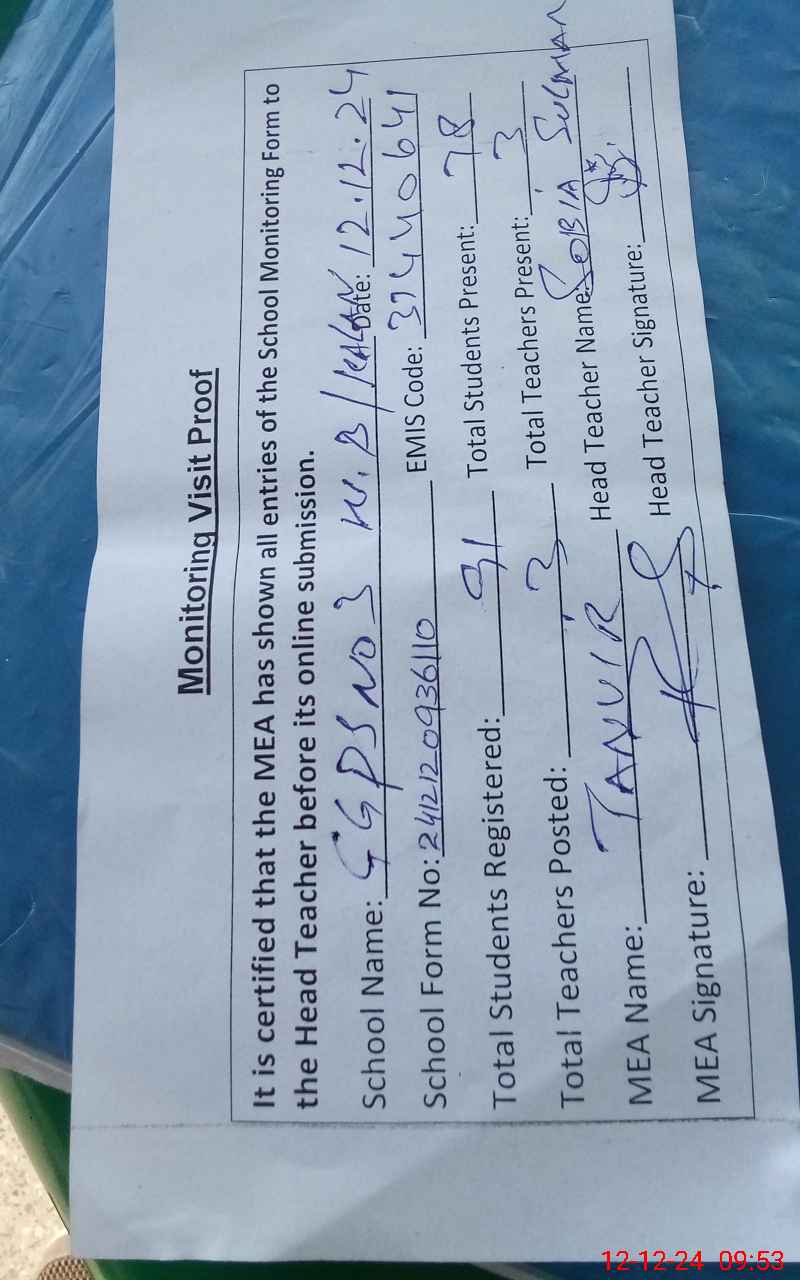 Monitoring Visit Proof
It is certified that the MEA has shown all entries of the School Monitoring Form to
the Head Teacher before its online submission.
School Name: GGPS NO 3 W.B/KALAN Date: 12.12.24
School Form No: 241212093610 EMIS Code: 37440641
Total Students Registered: 91 Total Students Present: 78
Total Teachers Posted: 3 Total Teachers Present: 3
MEA Name: TANVIR Head Teacher Name: SOBIA SULMAN
MEA Signature: Head Teacher Signature:
12-12-24 09:53